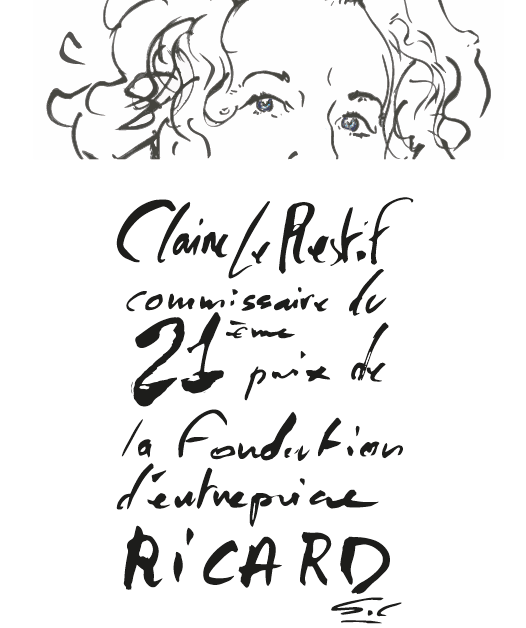 Claire Le Restif
commissaire du
21ème prix de
la Fondation
d'entreprise
RiCARD
S.C